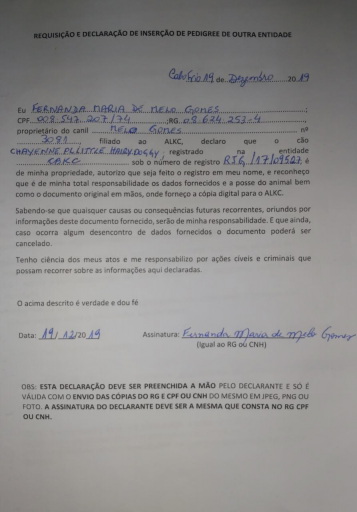 REQUISIÇÃO E DECLARAÇÃO DE INSERÇÃO DE PEDIGREE DE OUTRA ENTIDADE
19 de Dezembro 2019
Eu FERNANDA MARIA DE MELO GOMES
CPF 008 547 207/74 ;RG 08 624 253-4
proprietário do canil MELO GOMES nº
3081, filiado ao ALKC, declaro que o cão
registrado na entidade
CBKC sob o número de registro RJG/17/01527, é
de minha propriedade, autorizo que seja feito o registro em meu nome, e reconheço
que é de minha total responsabilidade os dados fornecidos e a posse do animal bem
como o documento original em mãos, onde forneço a cópia digital para o ALKC.
Sabendo-se que quaisquer causas ou consequências futuras recorrentes, oriundos por
informações deste documento fornecido, serão de minha responsabilidade. E que ainda,
caso ocorra algum desencontro de dados fornecidos o documento poderá ser
cancelado.
Tenho ciência dos meus atos e me responsabilizo por ações cíveis e criminais que
possam recorrer sobre as informações aqui declaradas.
O acima descrito é verdade e dou fé
Data: 19/12/2019 Assinatura: Fernanda Maria de Melo Gomes
(igual ao RG ou CNH)
OBS: ESTA DECLARAÇÃO DEVE SER PREENCHIDA A MÃO PELO DECLARANTE E SÓ É
VÁLIDA COM O ENVIO DAS CÓPIAS DO RG E CPF OU CNH DO MESMO EM JPEG, PNG OU
FOTO. A ASSINATURA DO DECLARANTE DEVE SER A MESMA QUE CONSTA NO RG CPF
OU CNH.